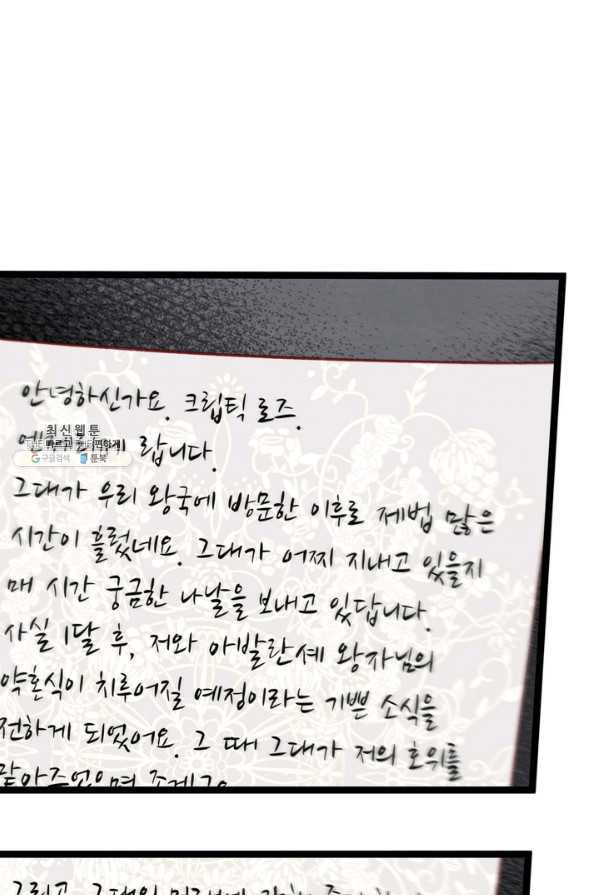 안녕하신가요. 크립틱 로즈.
최신웹툰
빠르고 편하게
구글검색 툰북
랍니다.
그대가 우리 왕국에 방문한 이후로 제법 많은
시간이 흘렀네요. 그대가 어찌 지내고 있을지
매 시간 궁금한 나날을 보내고 있답니다.
사실 1달 후, 저와 아발란셰 왕자님의
약혼식이 치루어질 예정이라는 기쁜 소식을
전하게 되었어요. 그 때 그대가 저의 호위를
맡아주었으면 좋겠구
그리고 그대의